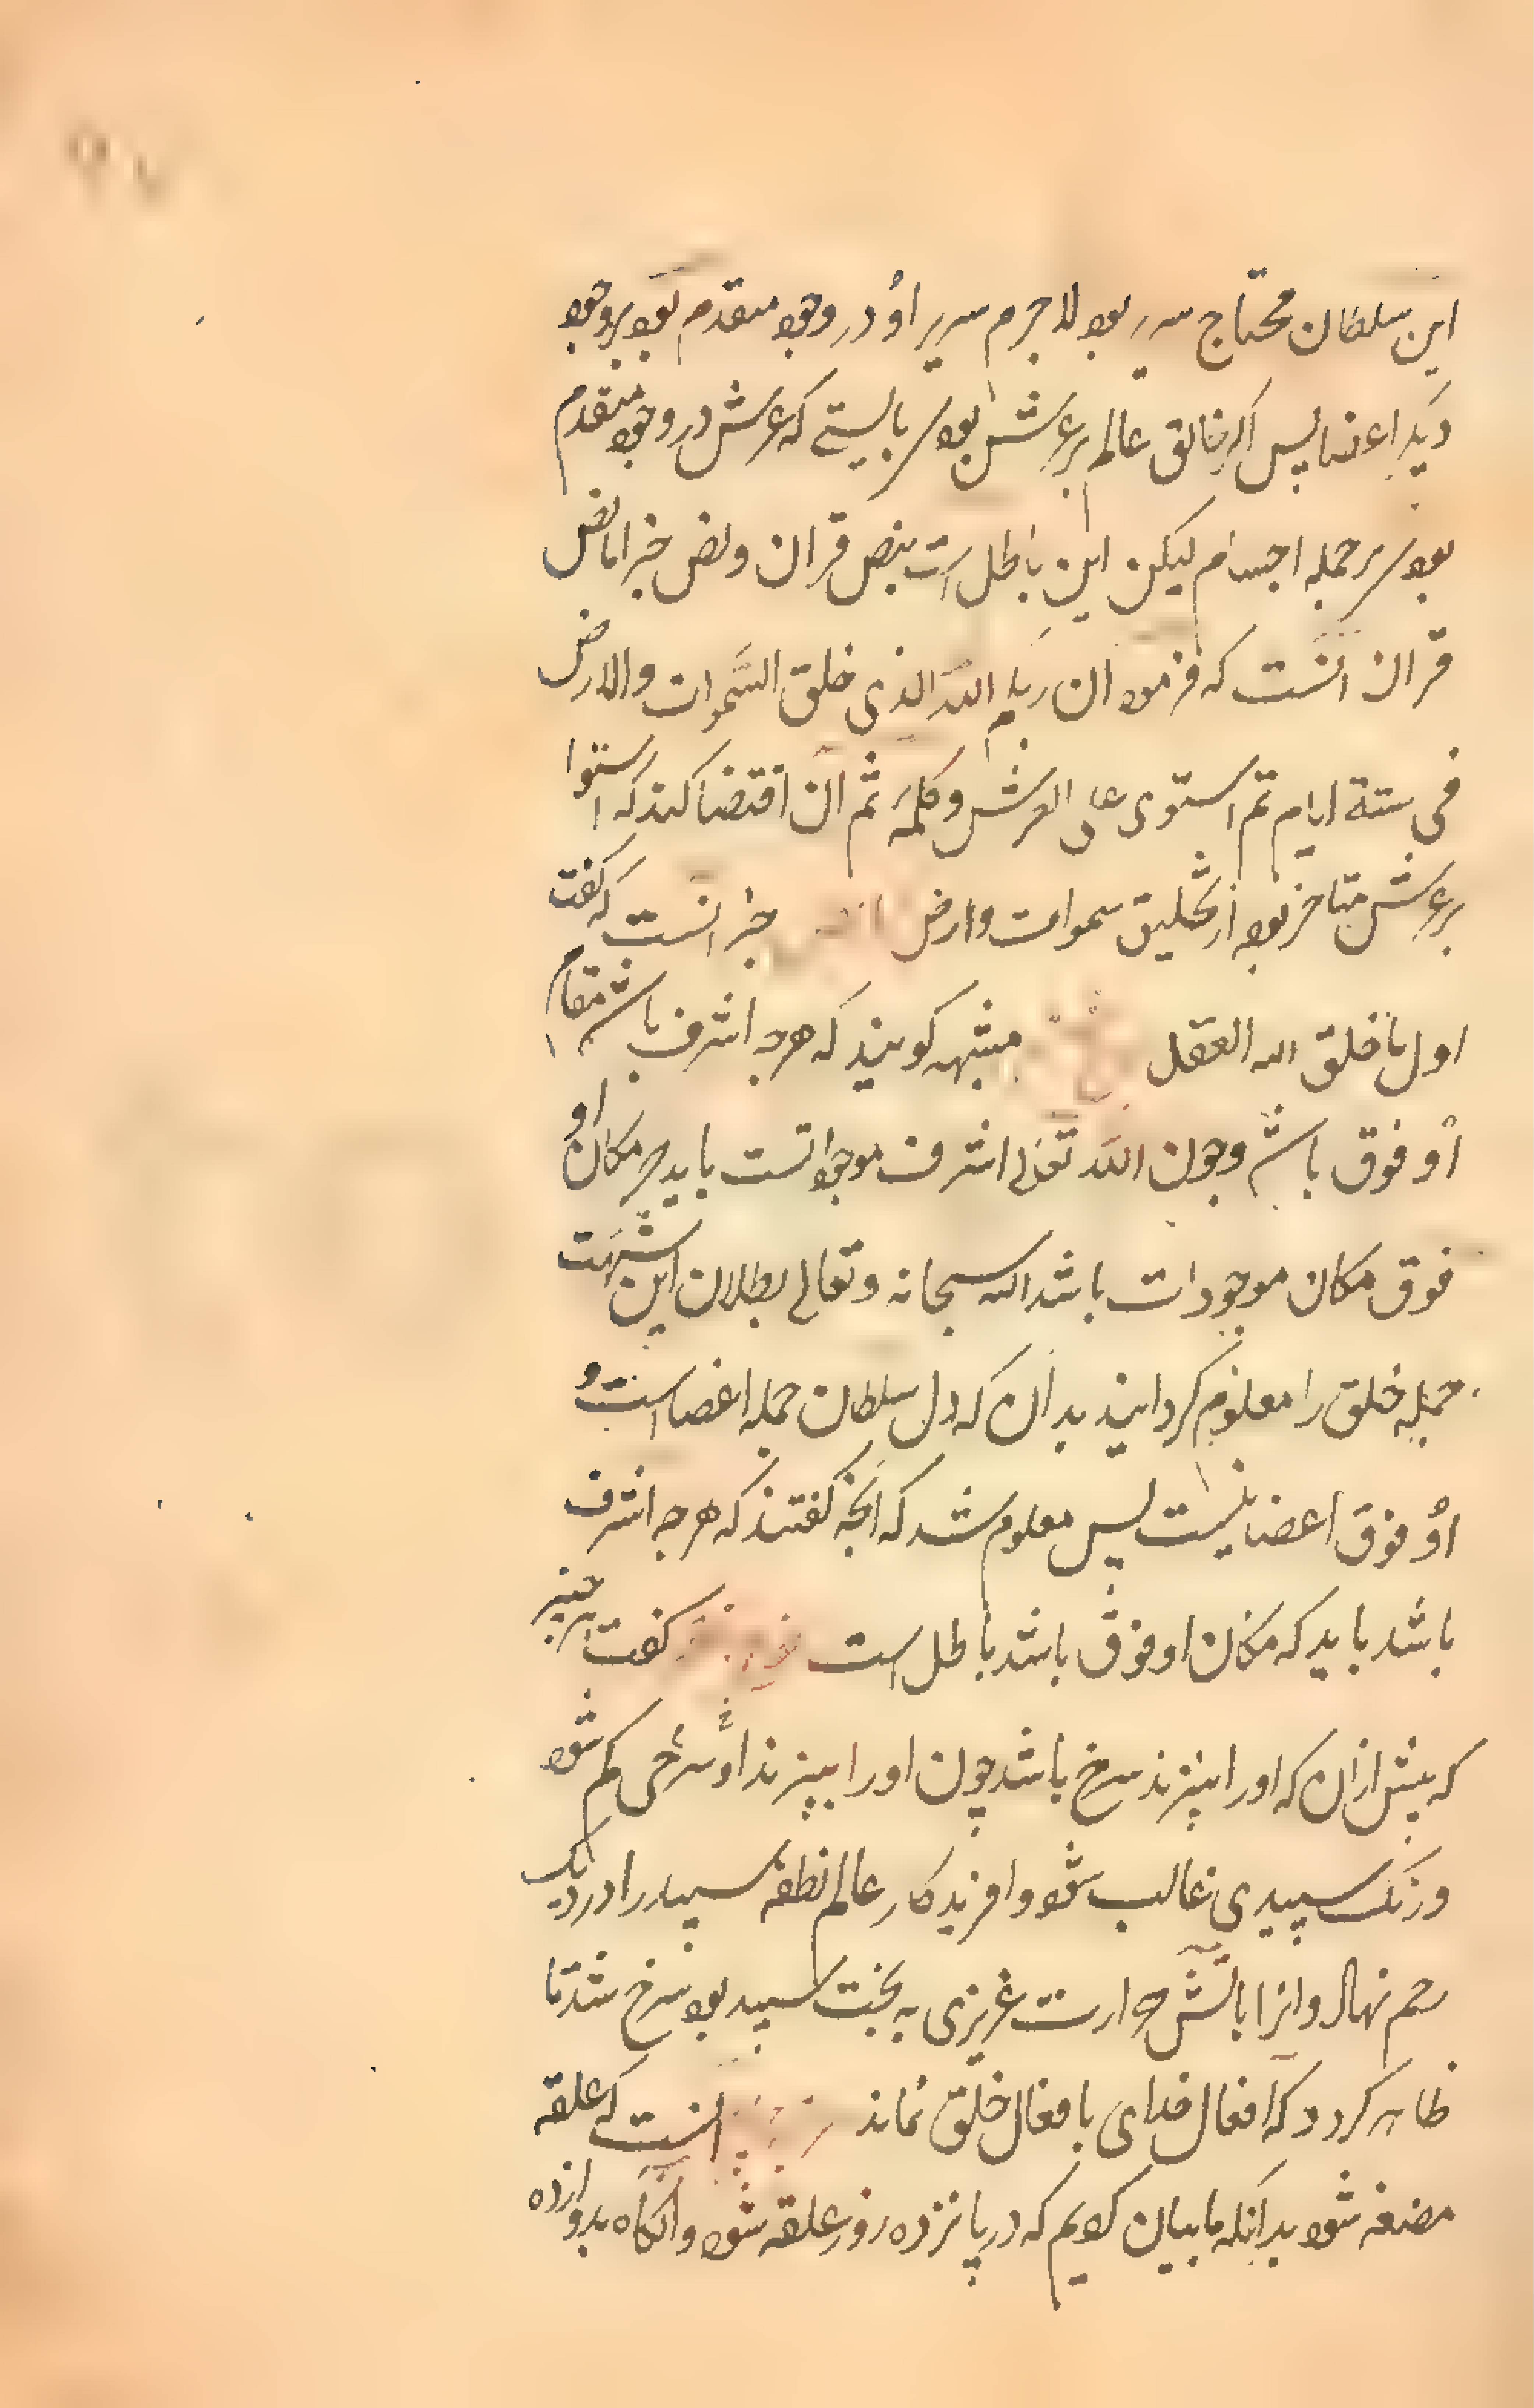 این سلطان محتاج سریر بود لاجرم سریر او در وجود متقدم بود بر وجود
دیگر اعضا پس اگر خالق عالم بر عرش بودی بایستی که عرش در وجود متقدم
بودی بر جمله اجسام لیکن این باطل است بنص قران ونص خبر اما نص
قران انست که فرمود ان ربکم الله الذی خلق السموات والارض
فی ستة ایام ثم استوی علی العرش وکلمه ثم ان اقتضا کند که استوا
بر عرش متاخر بود از تخلیق سموات وارض خبر انست که گفت
اول ما خلق الله العقل مشبهه کویند که هرچه اشرف باشد مقام
او فوق باشد وچون الله تعالی اشرف موجوداتست باید که مکان او
فوق مکان موجودات باشد الله سبحانه وتعالی بطلان این شبهت
جمله خلق را معلوم کردانید بدان که دل سلطان جمله اعضا است و
او فوق اعضا نیست پس معلوم شد که انچه کفتند که هرچه اشرف
باشد باید که مکان او فوق باشد باطل است کفت هر چیز
که پیش ازان که اورا بپزند سرخ باشد چون اورا بپزند او سرخی کم شود
ورنک سپیدی غالب شود وافریدکار عالم نطفه سپید را در دیک
رحم نهاد وانرا باتش حرارت غریزی بپخت سپید بود سرخ شد تا
ظاهر کردد که افعال خدای بافعال خلق نماند انست که علقه
مضغه شود بدانکه ما بیان کردیم که در پانزده روز علقه شود وانکاه بدوازده